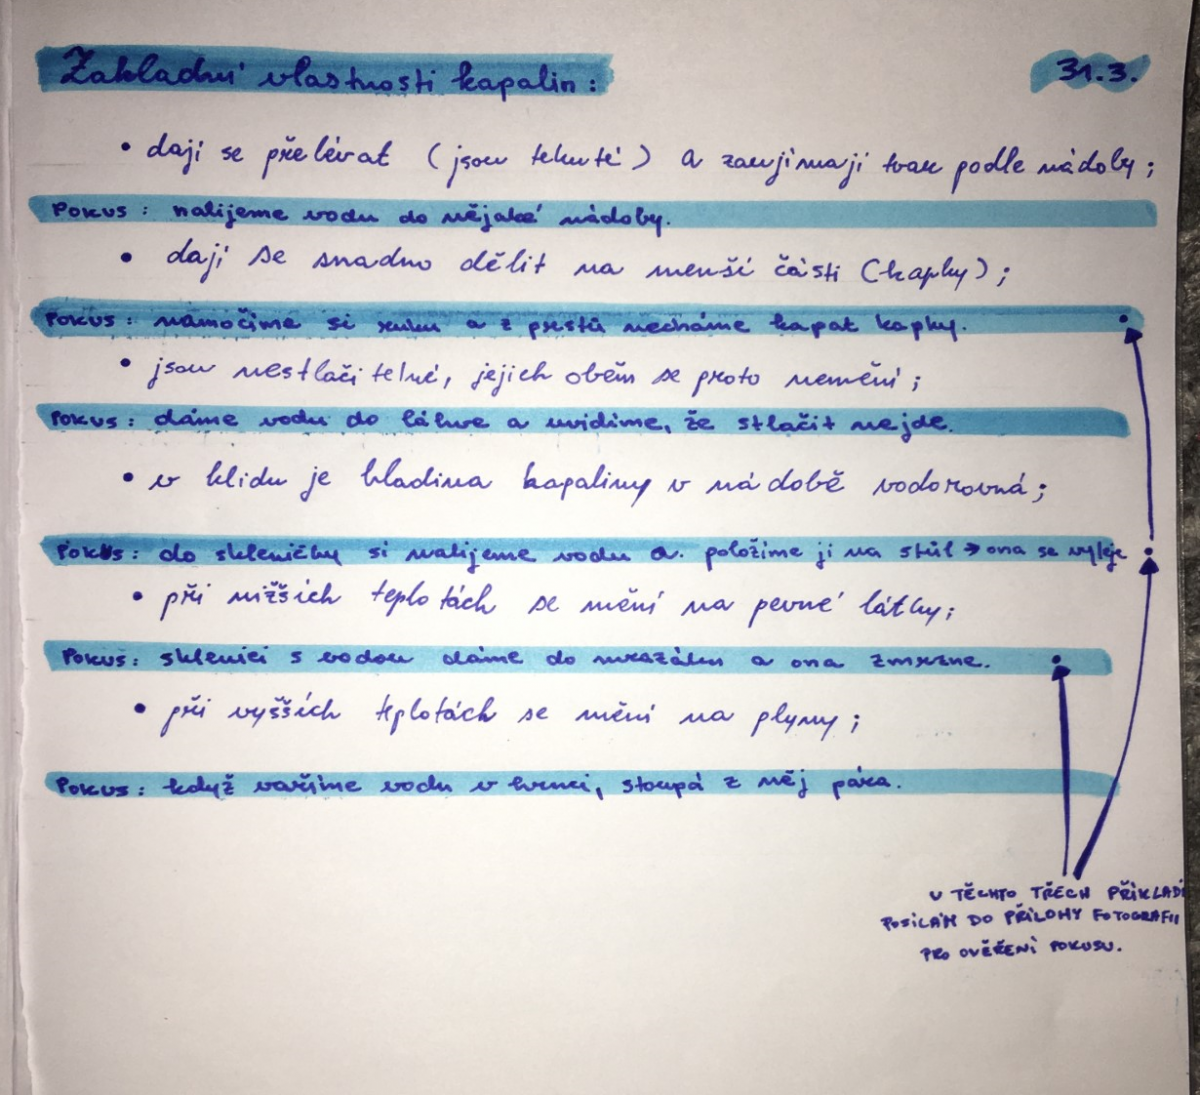 Základní vlastnosti kapalin: 31.3.
• dají se přelévat (jsou tekuté) a zaujímají tvar podle nádoby;
Pokus: nalijeme vodu do nějaké nádoby.
• dají se snadno dělit na menší části (kapky);
Pokus: namočíme si ruku a z prstů necháme kapat kapky.
• jsou nestlačitelné, jejich objem se proto nemění;
Pokus: dáme vodu do láhve a uvidíme, že stlačit nejde.
• v klidu je hladina kapaliny v nádobě vodorovná;
Pokus: do skleničky si nalijeme vodu a. položíme ji na stůl → ona se vyleje
• při nižších teplotách se mění na pevné látky;
Pokus: sklenici s vodou dáme do mrazáku a ona zmrzne.
• při vyšších teplotách se mění na plyny;
Pokus: když vaříme vodu v hrnci, stoupá z něj pára.
U TĚCHTO TŘECH PŘÍKLADŮ
POSÍLÁM DO PŘÍLOHY FOTOGRAFII
PRO OVĚŘENÍ POKUSU.